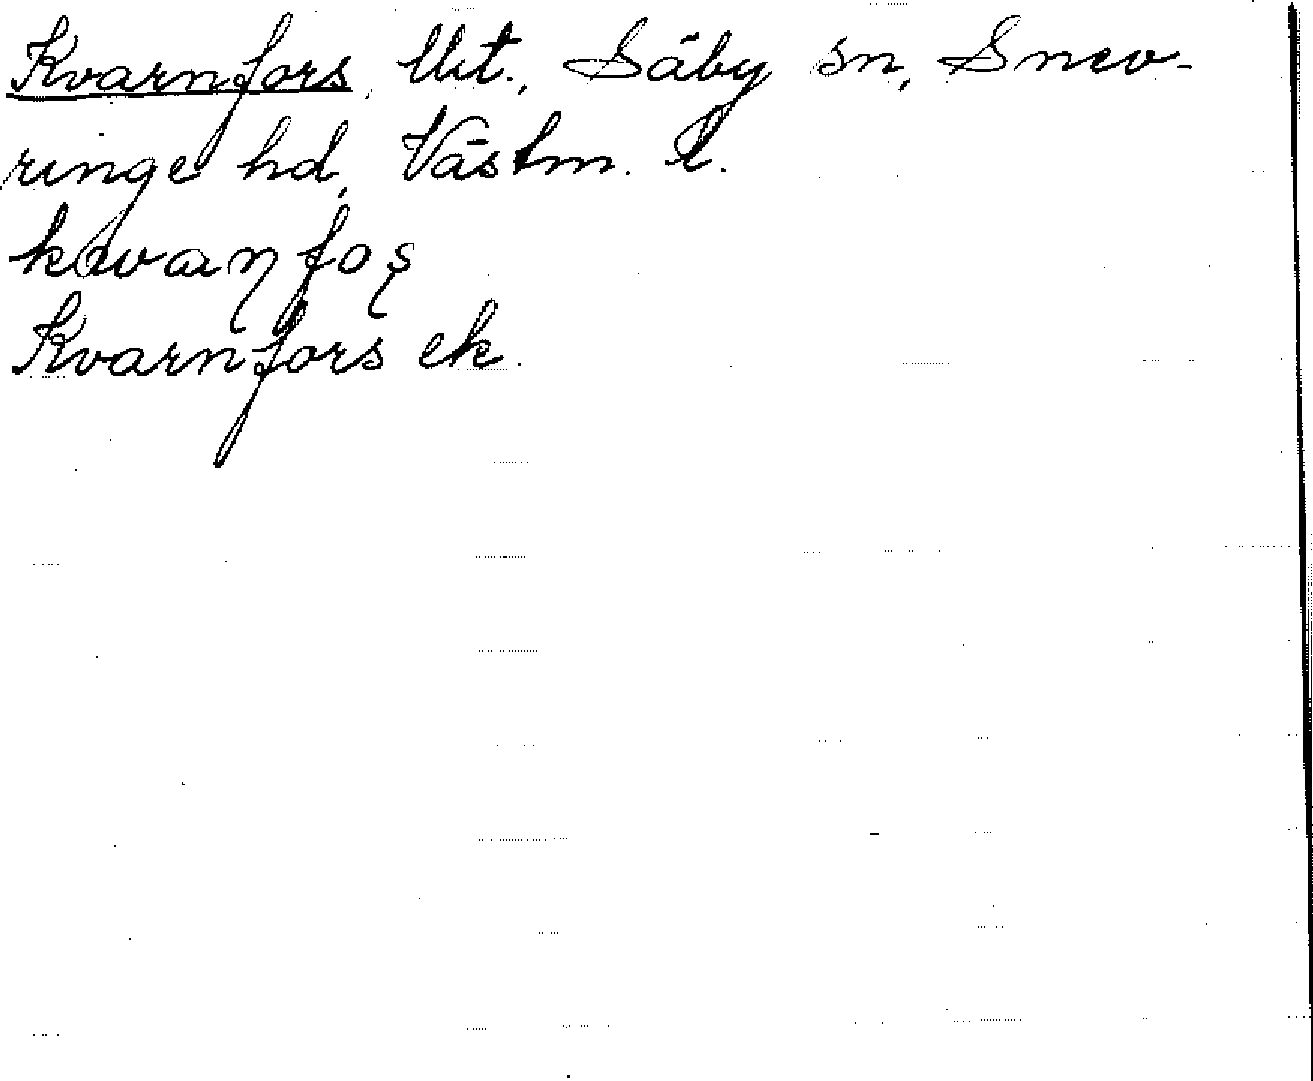 Kvarnfors, Ut., Säby sn, Snev-
ringe hd, Västm. l.
kwaɳfoʂ
Kvarnfors ek.